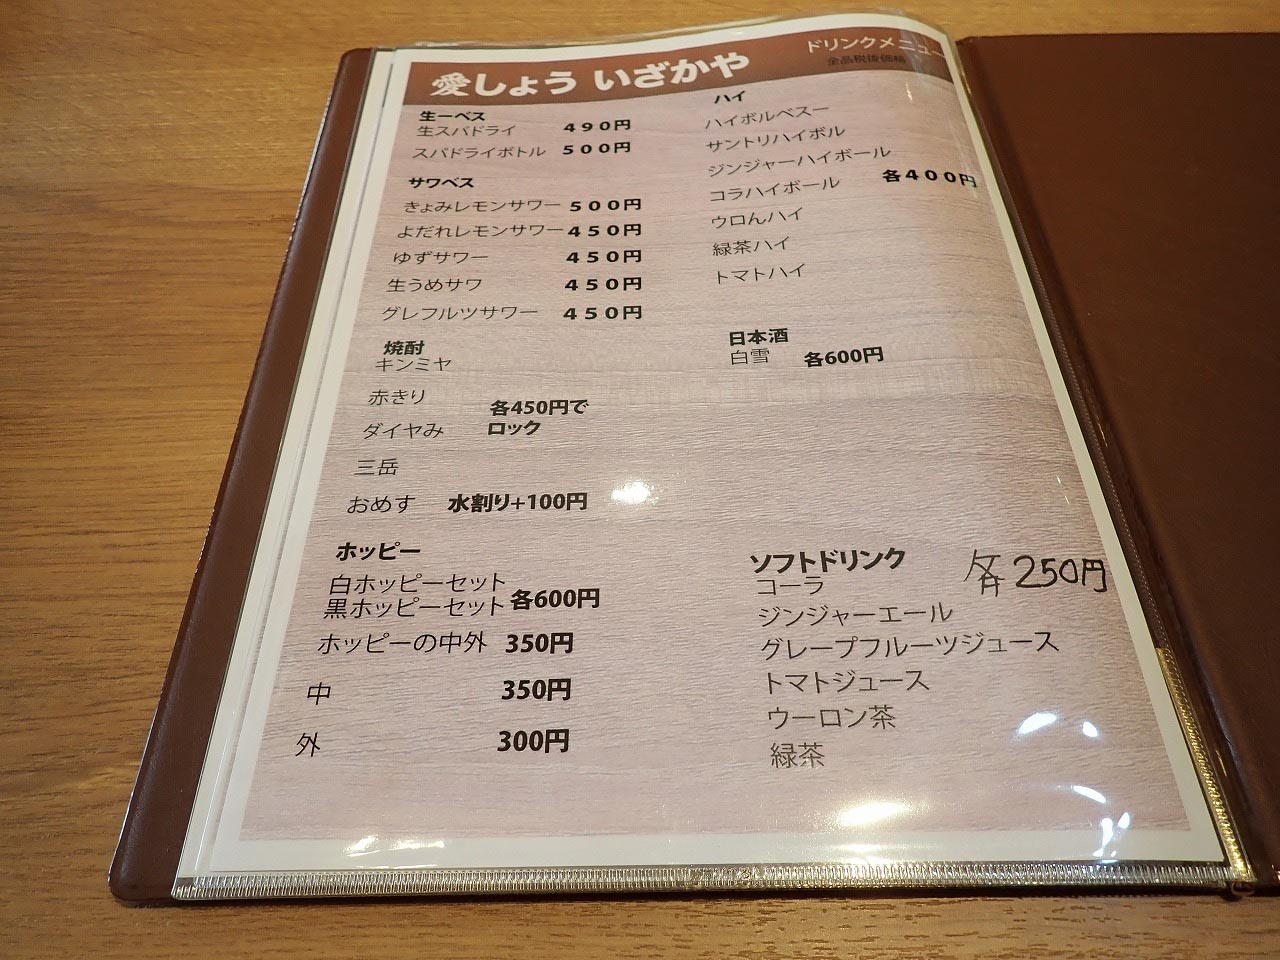 愛しょう いざかや
ドリンクメニュー
全品税抜価格
生ーベス
生スパドライ 490円
スパドライボトル 500円
サワベス
きょみレモンサワー 500円
よだれレモンサワー 450円
ゆずサワー 450円
生うめサワ 450円
グレフルツサワー 450円
焼酎
キンミヤ
赤きり
各450円で
ロック
ダイヤみ
三岳
おめす 水割り+100円
ホッピー
白ホッピーセット
黒ホッピーセット 各600円
ホッピーの中外 350円
中 350円
外 300円
ハイ
ハイボルベスー
サントリハイボル
ジンジャーハイボール
コラハイボール 各400円
ウロんハイ
緑茶ハイ
トマトハイ
日本酒
白雪 各600円
ソフトドリンク 各250円
コーラ
ジンジャーエール
グレープフルーツジュース
トマトジュース
ウーロン茶
緑茶